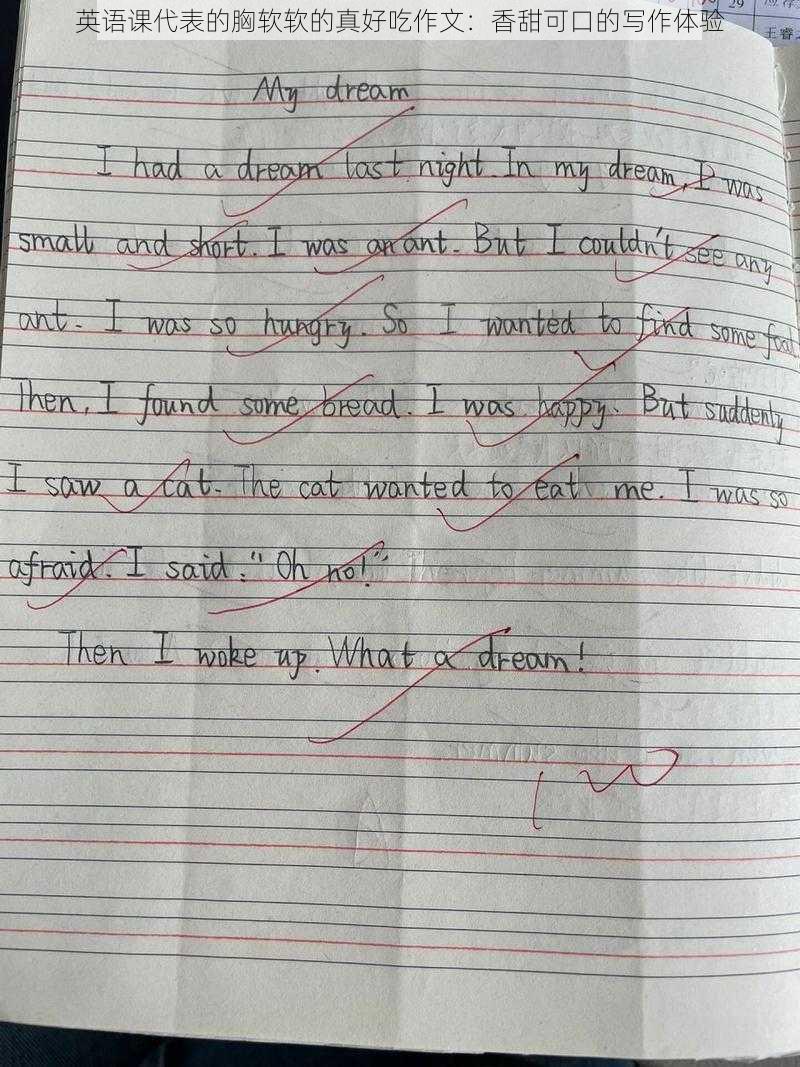 英语课代表的胸软软的真好吃作文：香甜可口的写作体验
29
王睿
My dream
I had a dream last night. In my dream, I was
small and short. I was an ant. But I couldn't see any
ant. I was so hungry. So I wanted to find some food
Then, I found some bread. I was happy. But suddenly
I saw a cat. The cat wanted to eat me. I was so
afraid. I said: "Oh no!"
Then I woke up. What a dream!
100